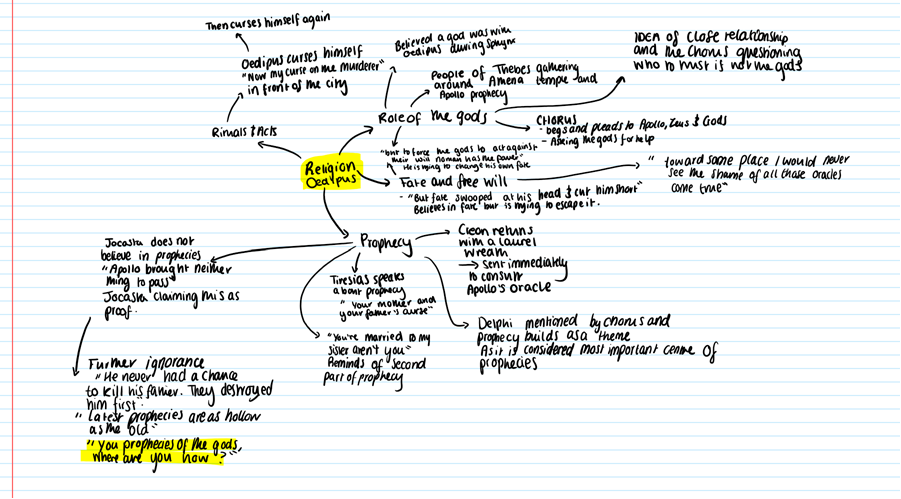 Then curses himself again
Oedipus curses himself
"Now my curse on the murderer"
in front of the city
Rituals & Acts
Believed a god was with
Oedipus during Sphynx
People of Thebes gathering
around Athena temple and
Apollo prophecy
Role of the gods
IDEA of close relationship
and the Chorus questioning
who to trust is not the gods
CHORUS
- begs and pleads to Apollo, Zeus & Gods
- Asking the gods for help
"but to force the gods to act against
their will no man has the power"
He is trying to change his own fate
Religion
Oedipus
Fate and free will
- "But fate swooped at his head & cut him short"
Believes in fate but is trying to escape it.
" toward some place I would never
see the shame of all those oracles
come true"
Prophecy
Creon returns
with a laurel
wreath
→ sent immediately
to consult
Apollo's oracle
Jocasta does not
believe in prophecies
"Apollo brought neither
thing to pass"
Jocasta claiming this as
proof.
Tiresias speaks
about prophecy
" Your mother and
your father's curse"
"You're married to my
sister aren't you"
Reminds of second
part of prophecy
Delphi mentioned by chorus and
prophecy builds as a theme
As it is considered most important centre of
prophecies
Further ignorance
"He never had a chance
to kill his father. They destroyed
him first.
"Latest prophecies are as hollow
as the old"
"You prophecies of the gods
where are you now?"